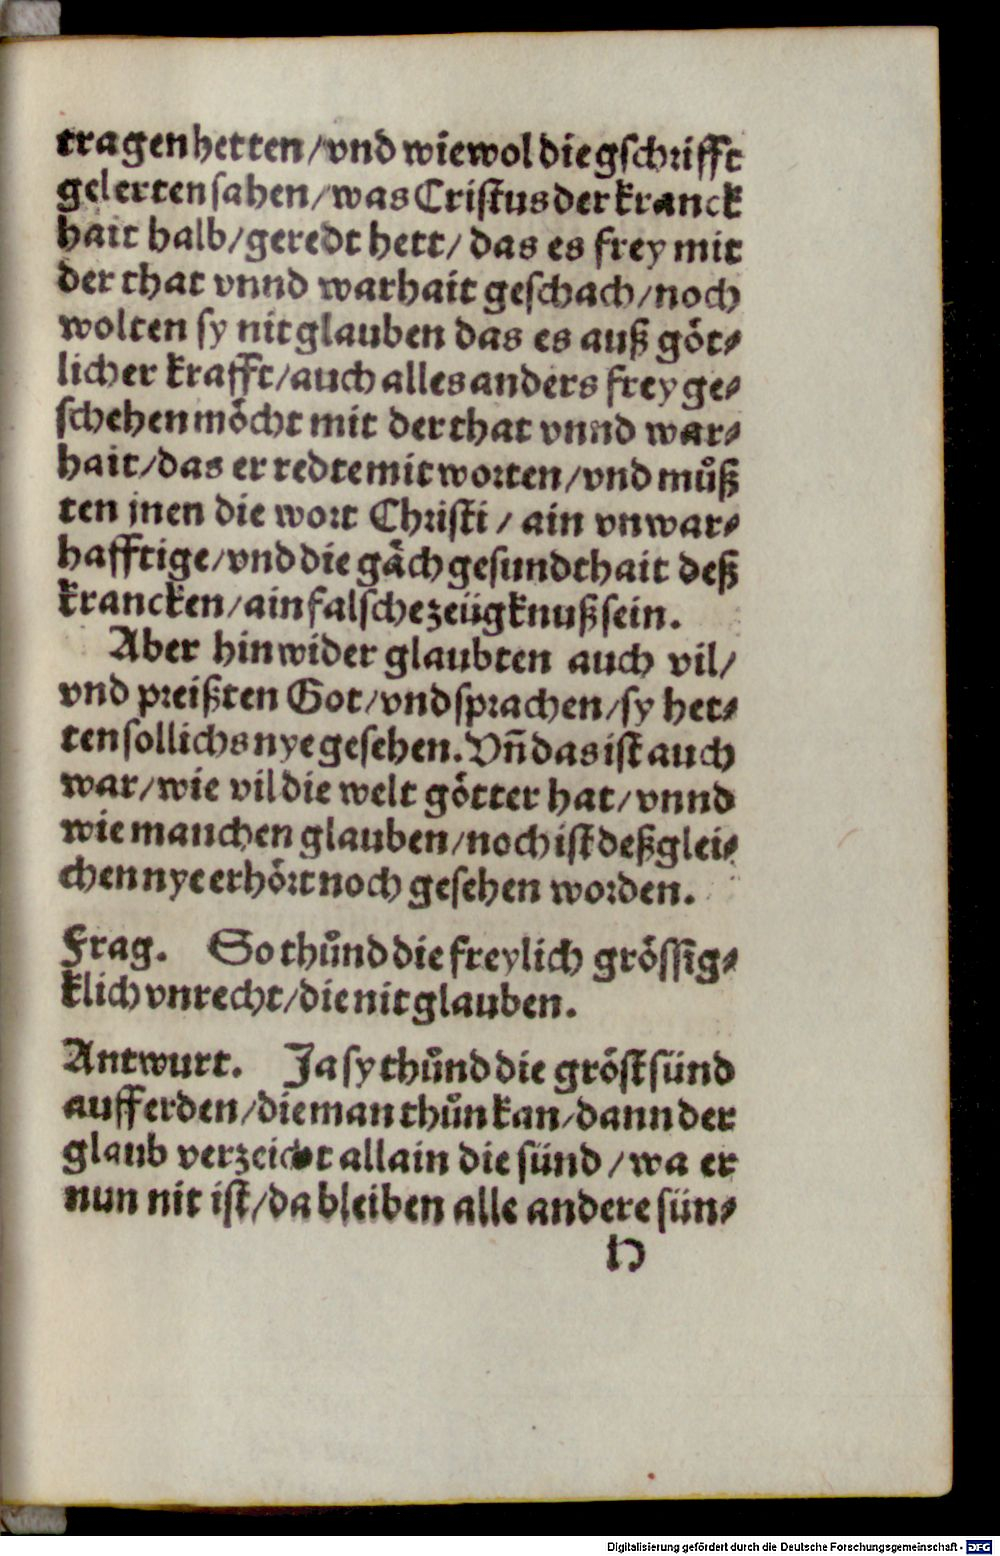 tragen hetten / vnd wiewol die gschrifft
gelerten sahen / was Cristus der kranck
hait halb / geredt hett / das es frey mit
der that vnnd warhait geschach / noch
wolten sy nit glauben das es auß göt⸗
licher krafft / auch alles anders frey ge⸗
schehen möcht mit der that vnnd war⸗
hait / das er redte mit worten / vnd muͦß
ten jnen die wort Christi / ain vnwar⸗
hafftige / vnd die gäch gesundthait deß
krancken / ain falsche zeügknuß sein.
Aber hinwider glaubten auch vil /
vnd preißten Got / vnd sprachen / sy het⸗
ten sollichs nye gesehen. Vñ das ist auch
war / wie vil die welt götter hat / vnnd
wie manchen glauben / noch ist deßglei⸗
chen nye erhört noch gesehen worden.
Frag. So thuͦnd die freylich grössig⸗
klich vnrecht / die nit glauben.
Antwurt. Ja sy thuͦnd die gröst sünd
auff erden / die man thuͦn kan / dann der
glaub verzeicht allain die sünd / wa er
nun nit ist / da bleiben alle andere sün⸗
H
Digitalisierung gefördert durch die Deutsche Forschungsgemeinschaft - DFG